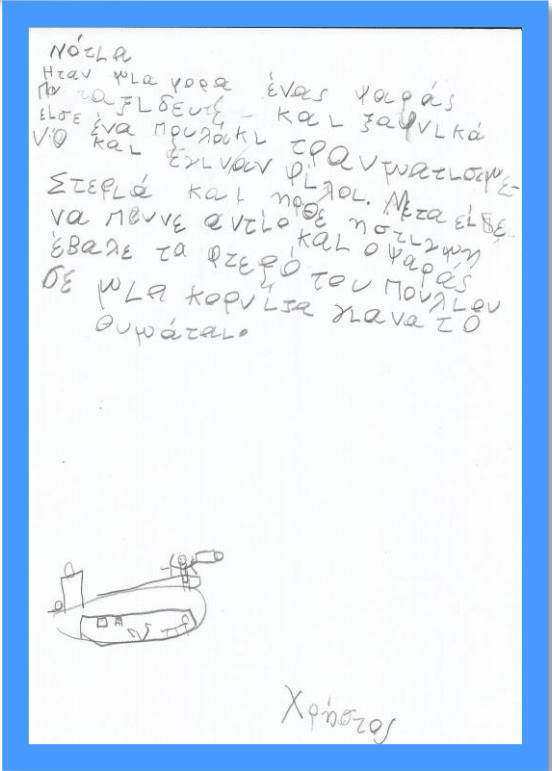 Νότια
Ηταν μια φορα ένας ψαράς
που ταξιδευε και ξαφνικά
είσε ένα πουλάκι τραυματισμέ-
νο και έγιναν φίλοι. Μετα είδε
Στεριά και ηρθε ηστιγμη
να πουνε αντίο και ο ψαράς
έβαλε τα φτερό του πουλιου
σε μια κορνιζα για να το
θυμάται.
Χρήστος